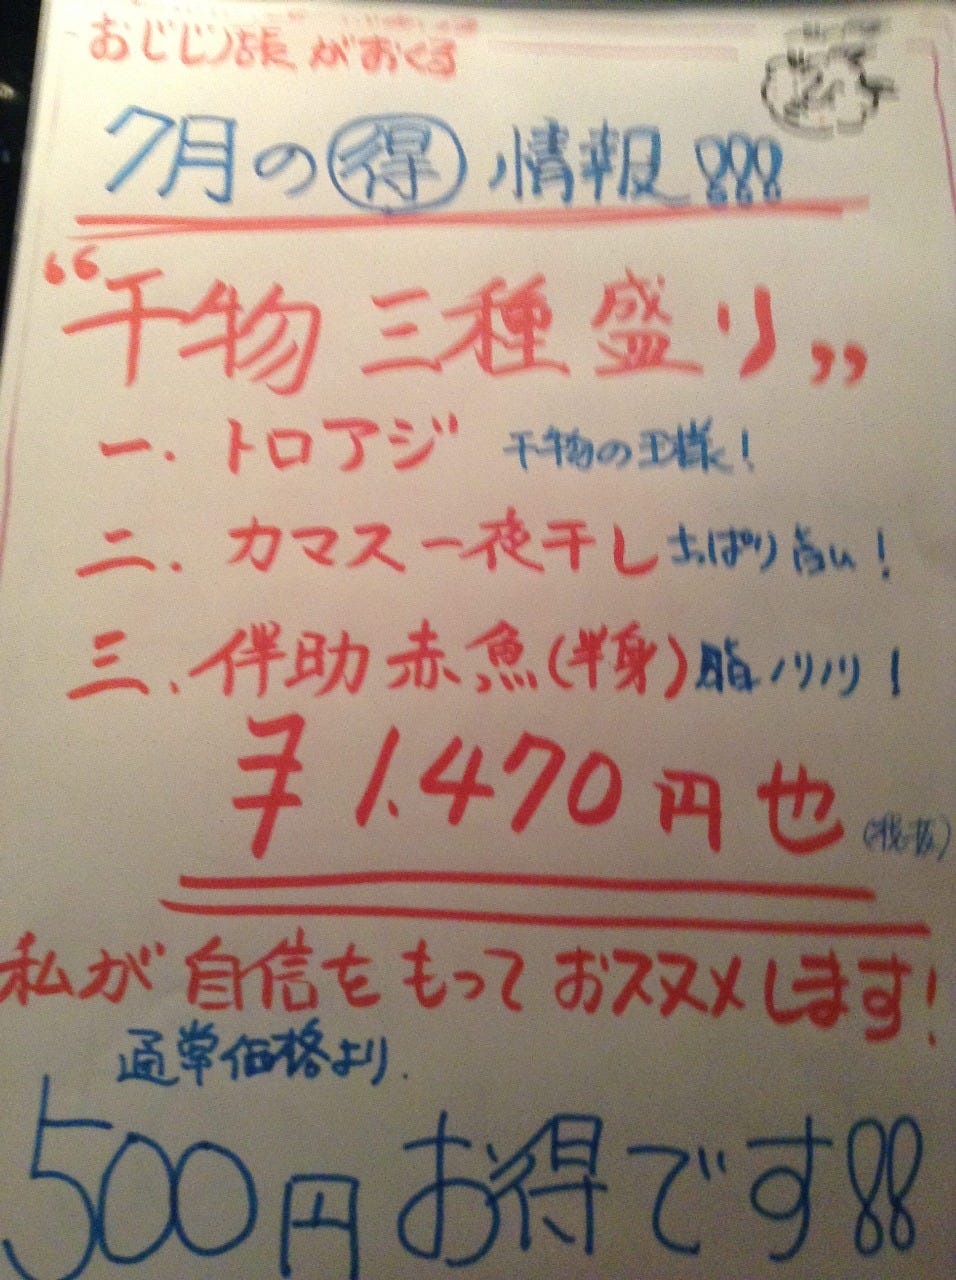 がおくる
7月の得情報!!!
“干物 三種盛り„
一. トロアジ 干物の王様!
二. カマス一夜干し さっぱり旨い!
三. 伴助赤魚(半身) 脂ノリノリ!
¥1.470円也 (税抜)
私が自信をもっておススメします!
通常価格より.
500円お得です!!